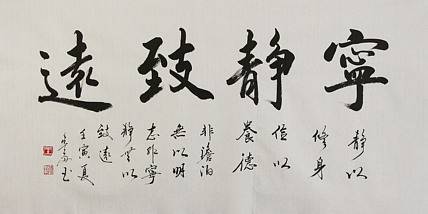 寧靜致遠
静以
修身
俭以
養德
非澹泊
無以明
志非寧
静無以
致遠
壬寅夏
书